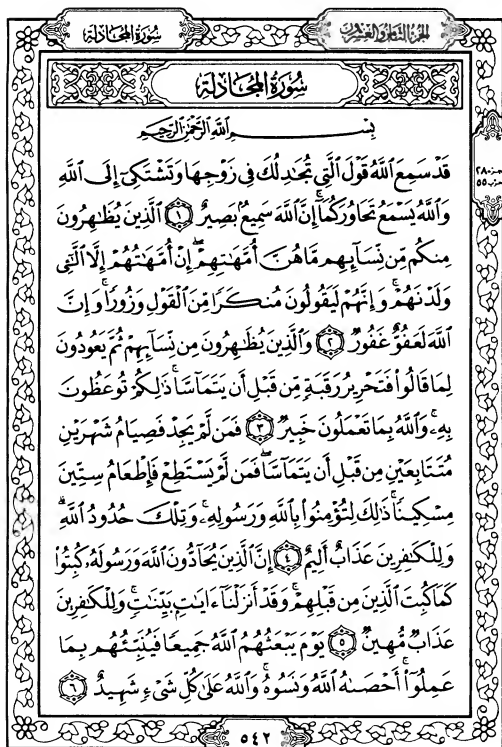 سُورَةُ المُجَادلَة
الجُزءُ الثَّامِنُ وَالعِشْرُونَ
سُورَةُ المُجَادلَة
بِسْمِ اللَّهِ الرَّحْمَٰنِ الرَّحِيمِ
قَدْ سَمِعَ اللَّهُ قَوْلَ الَّتِي تُجَادِلُكَ فِي زَوْجِهَا وَتَشْتَكِي إِلَى اللَّهِ
وَاللَّهُ يَسْمَعُ تَحَاوُرَكُمَا إِنَّ اللَّهَ سَمِيعٌ بَصِيرٌ ١ الَّذِينَ يُظَاهِرُونَ
مِنكُم مِّن نِّسَائِهِم مَّا هُنَّ أُمَّهَاتِهِمْ إِنْ أُمَّهَاتُهُمْ إِلَّا اللَّائِي
وَلَدْنَهُمْ وَإِنَّهُمْ لَيَقُولُونَ مُنكَرًا مِّنَ الْقَوْلِ وَزُورًا وَإِنَّ
اللَّهَ لَعَفُوٌّ غَفُورٌ ٢ وَالَّذِينَ يُظَاهِرُونَ مِن نِّسَائِهِمْ ثُمَّ يَعُودُونَ
لِمَا قَالُوا فَتَحْرِيرُ رَقَبَةٍ مِّن قَبْلِ أَن يَتَمَاسَّا ذَٰلِكُمْ تُوعَظُونَ
بِهِ وَاللَّهُ بِمَا تَعْمَلُونَ خَبِيرٌ ٣ فَمَن لَّمْ يَجِدْ فَصِيَامُ شَهْرَيْنِ
مُتَتَابِعَيْنِ مِن قَبْلِ أَن يَتَمَاسَّا فَمَن لَّمْ يَسْتَطِعْ فَإِطْعَامُ سِتِّينَ
مِسْكِينًا ذَٰلِكَ لِتُؤْمِنُوا بِاللَّهِ وَرَسُولِهِ وَتِلْكَ حُدُودُ اللَّهِ
وَلِلْكَافِرِينَ عَذَابٌ أَلِيمٌ ٤ إِنَّ الَّذِينَ يُحَادُّونَ اللَّهَ وَرَسُولَهُ كُبِتُوا
كَمَا كُبِتَ الَّذِينَ مِن قَبْلِهِمْ وَقَدْ أَنزَلْنَا آيَاتٍ بَيِّنَاتٍ وَلِلْكَافِرِينَ
عَذَابٌ مُّهِينٌ ٥ يَوْمَ يَبْعَثُهُمُ اللَّهُ جَمِيعًا فَيُنَبِّئُهُم بِمَا
عَمِلُوا أَحْصَاهُ اللَّهُ وَنَسُوهُ وَاللَّهُ عَلَىٰ كُلِّ شَيْءٍ شَهِيدٌ ٦
٥٤٢